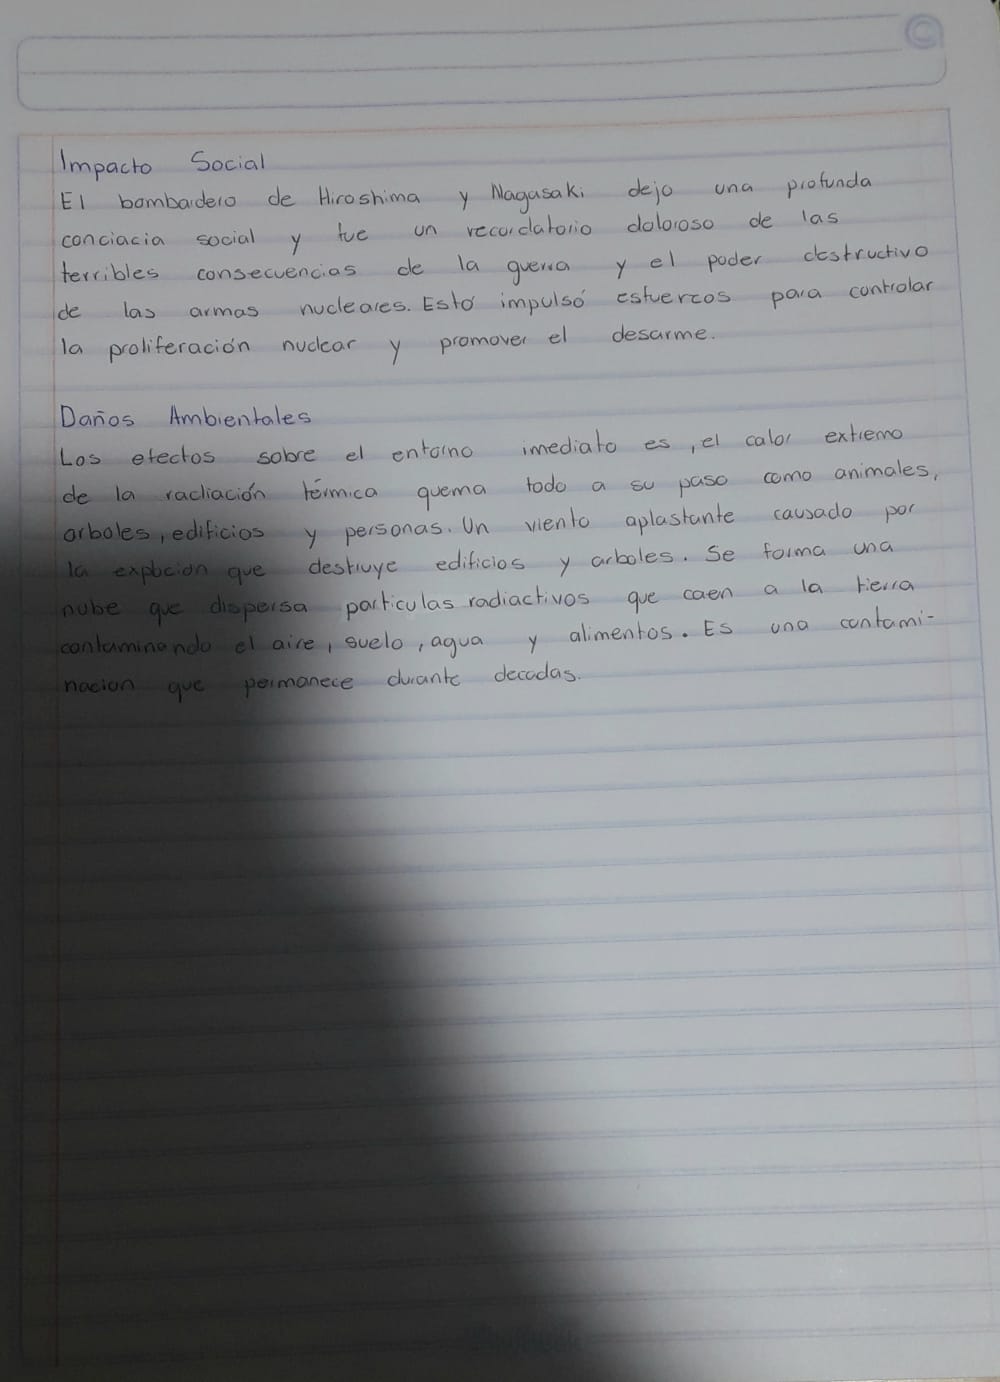 Impacto Social
El bombardero de Hiroshima y Nagasaki dejo una profunda
conciacia social y fue un recordatorio doloroso de las
terribles consecuencias de la guerra y el poder destructivo
de las armas nucleares. Esto impulsó esfuercos para controlar
la proliferación nuclear y promover el desarme.
Daños Ambientales
Los efectos sobre el entorno imediato es, el calor extremo
de la radiación térmica quema todo a su paso como animales,
arboles, edificios y personas. Un viento aplastante causado por
la explocion que destruye edificios y arboles. Se forma una
nube que dispersa particulas radiactivos que caen a la tierra
contaminando el aire, suelo, agua y alimentos. Es una contami-
nacion que permanece durante decadas.